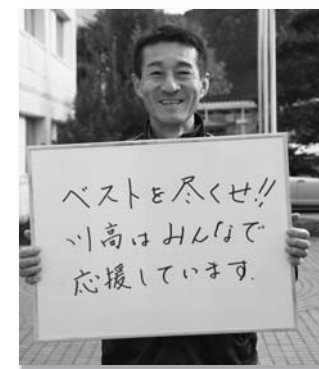 ベストを尽くせ!!
川高はみんなで
応援しています.